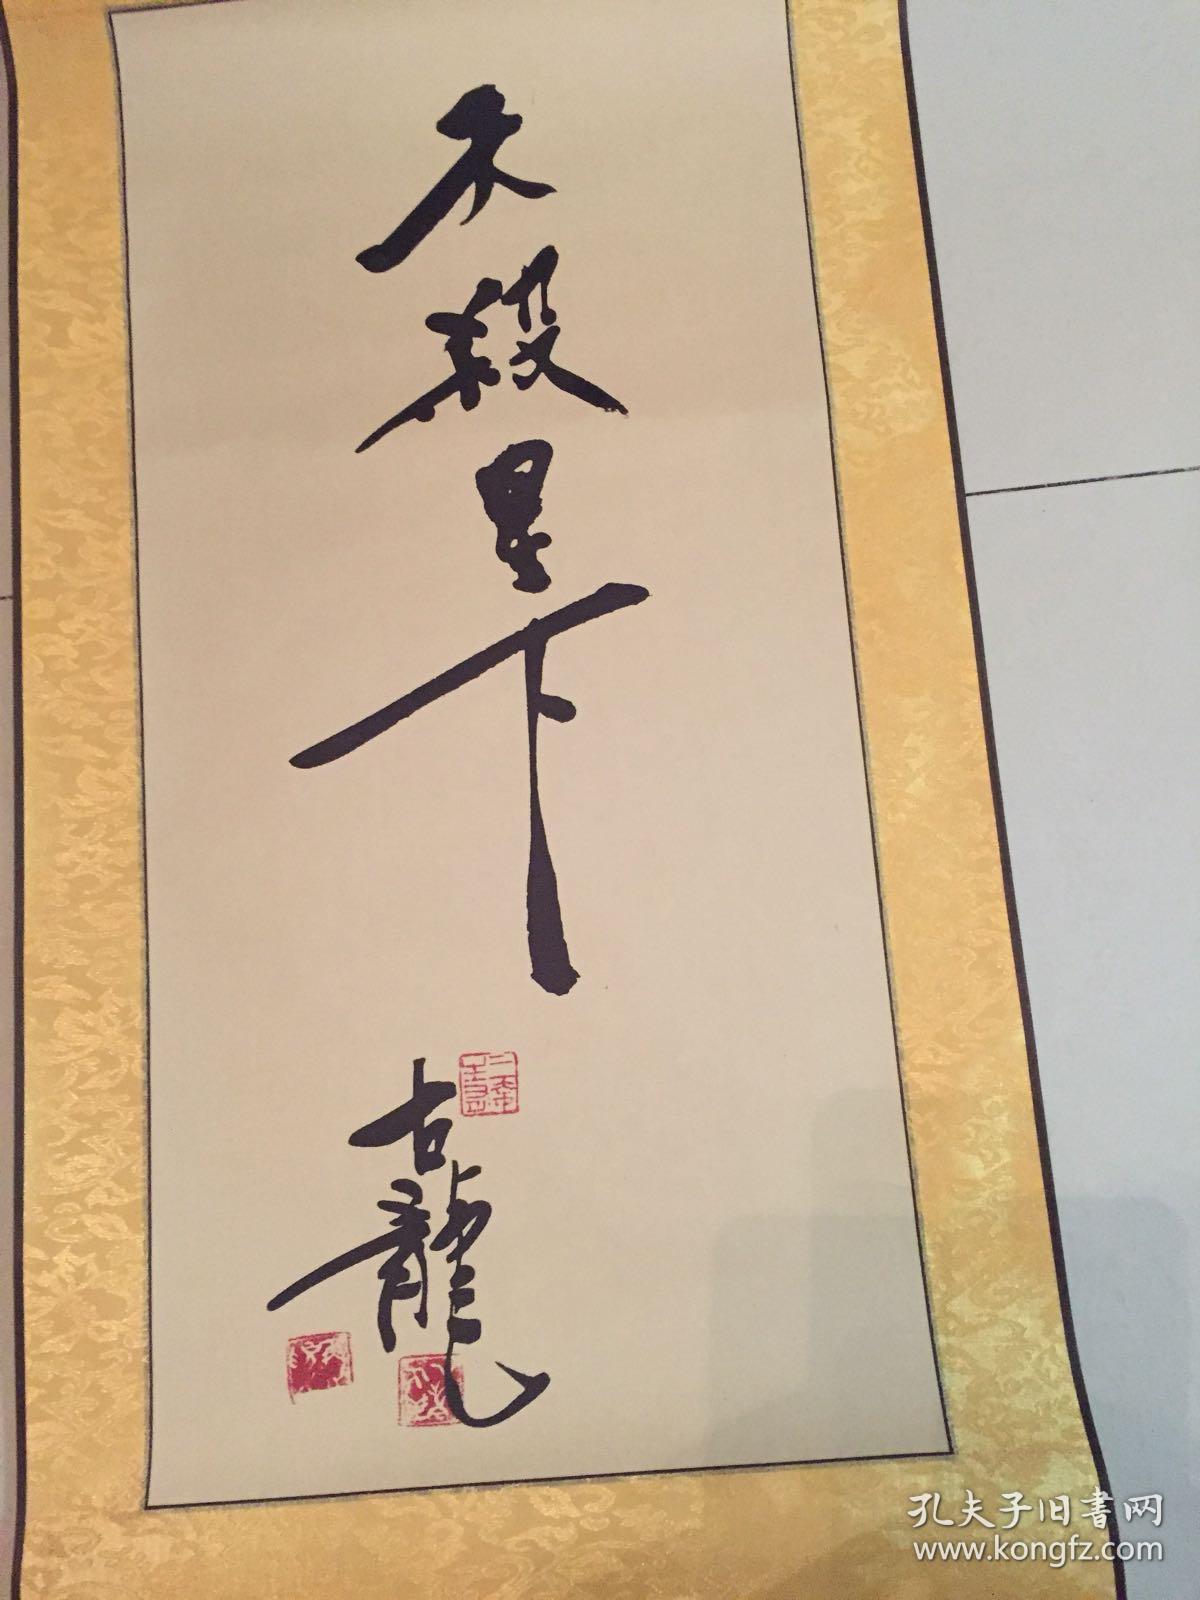 不殺是下
古龍
孔夫子旧書网
www.kongfz.com